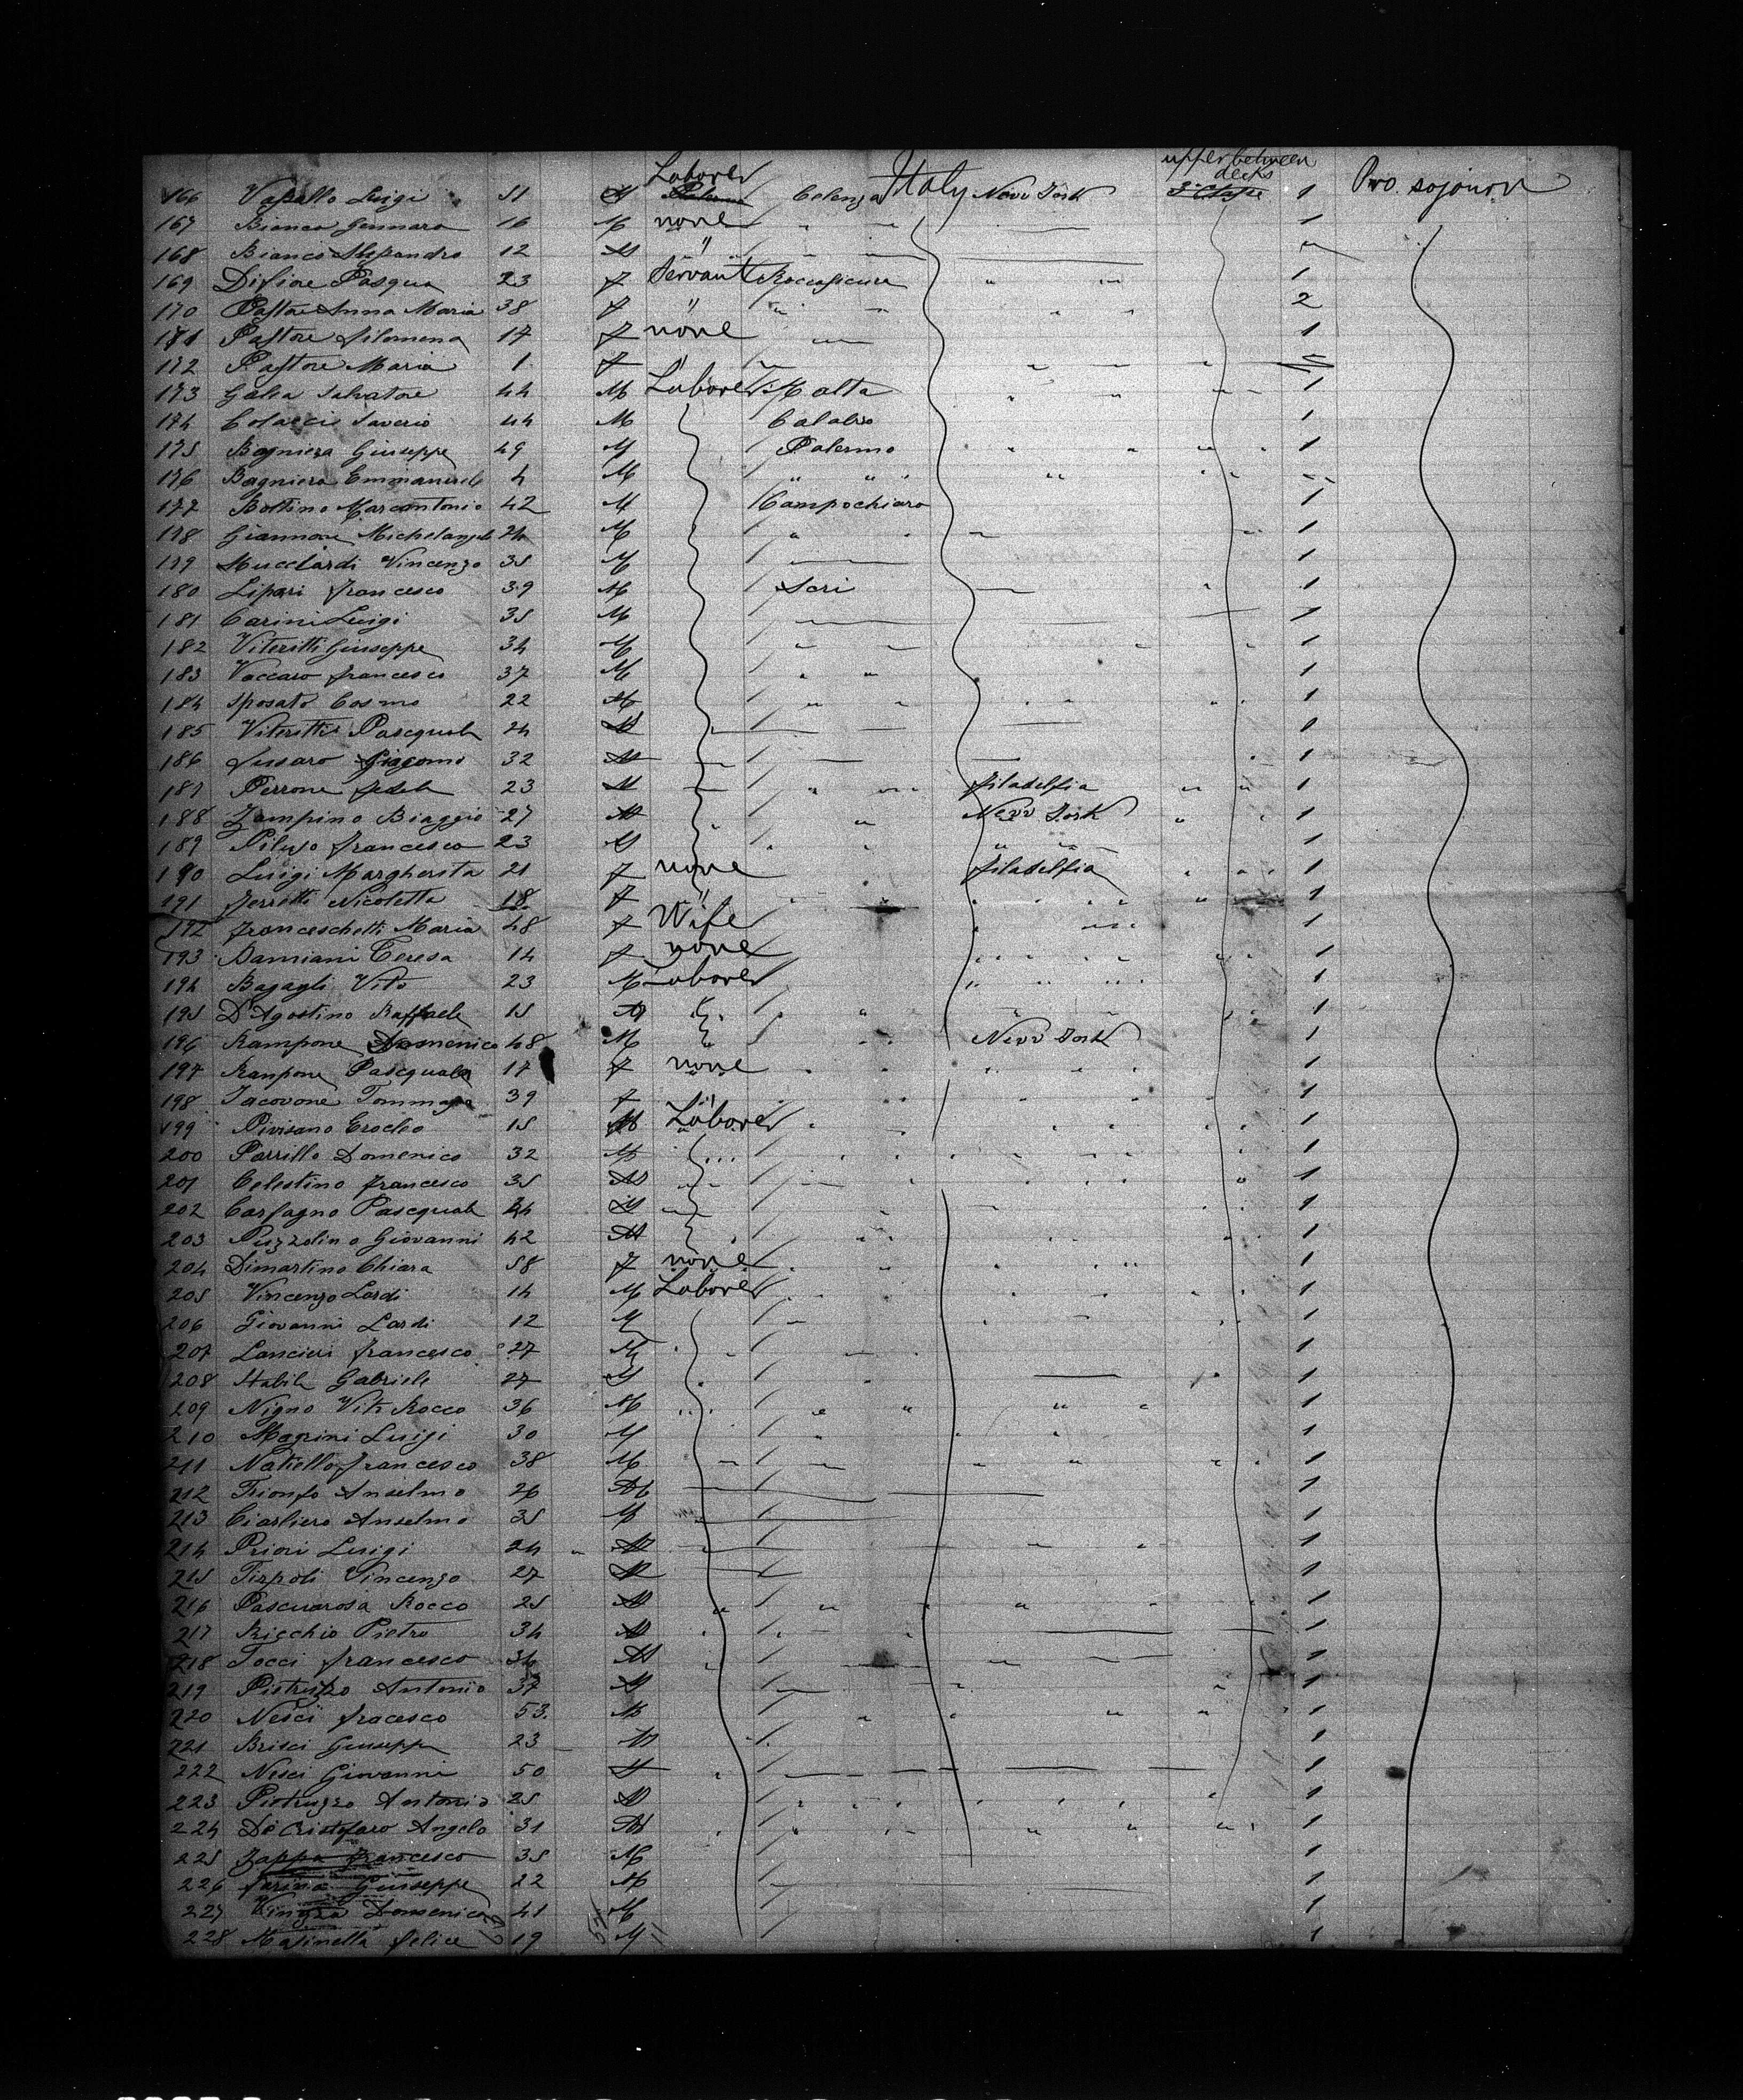 Laborer upper between decks
166 Vasallo Luigi 51 M Palermo Colenza Italy New York 3e Classe 1 Pro. sojourn
167 Bianco Gennaro 16 M none " " 1
168 Bianco Alessandro 12 M " " "
169 Difiore Pasqua 23 f Servant Roccasicura " " 1
170 Pastore Anna Maria 38 f " " " " " 2
171 Pastore filomena 17 f none " 1
172 Pastore Maria 1 f " " " "
173 Galea Salvatore 44 M Laborer Malta " " " 1
174 Colacci Saverio 44 M Calabro 1
175 Bagniera Giuseppe 49 M Palermo " " " 1
176 Bagniera Emmanuele 4 M " " " "
177 Bottino Marcantonio 42 M Campochiaro 1
178 Giannone Michelangelo 24 M " " " 1
179 Mucciardi Vincenzo 35 M 1
180 Lipari francesco 39 M Scri 1
181 Carini Luigi 35 M 1
182 Viteritti Giuseppe 34 M " " " 1
183 Vaccaro francesco 37 M " " 1
184 Sposato Cosmo 22 M " " " 1
185 Viteritti Pasquale 24 M 1
186 Lussaro Giacomo 32 M 1
187 Perrone fedele 23 M " " filadelfia " " 1
188 Zampino Biaggio 27 M " New York " 1
189 Piluso francesco 23 M " " " " 1
190 Luigi Margherita 21 f none filadelfia " " 1
191 ferretti Nicoletta 18 f " " " " 1
192 franceschetti Maria 48 f Wife " " 1
193 Damiani Teresa 14 f none " " " 1
194 Bagagli Vito 23 M Laborer " " " 1
195 D'Agostino Raffaele 15 M " " " 1
196 Rampone Domenico 48 M " New York 1
197 Rampone Pasquale 17 f none " " " 1
198 Iacovone Tommasa 39 f " " " 1
199 Pivisano Erocleo 15 M Laborer " " " 1
200 Parrillo Domenico 32 M " " " 1
201 Celestino francesco 35 M " " " 1
202 Carfagno Pasquale 44 M " " " 1
203 Puzzolino Giovanni 42 M " " " 1
204 Dimartino Chiara 58 f none " " " 1
205 Vincenzo Lardi 14 M Laborer " " " 1
206 Giovanni Lardi 12 M " " " 1
207 Lancieri francesco 27 M " " 1
208 Stabile Gabriele 27 M " " 1
209 Nigno Vito Rocco 36 M " " " " " 1
210 Magrini Luigi 30 M " " " 1
211 Natiello francesco 38 M " " " " 1
212 Trionfo Anselmo 26 M 1
213 Ciarliero Anselmo 35 M 1
214 Priori Luigi 24 M " " 1
215 Tirpoli Vincenzo 27 M 1
216 Pascuarosa Rocco 25 M " " " " " 1
217 Ricchio Pietro 34 M " " 1
218 Tocci francesco 36 M " " 1
219 Antonio 37 M " " 1
220 Nesci fracesco 53. M " " " " 1
221 Brisci Giuseppe 23 M " 1
222 Nesci Giovanni 50 M " 1
223 Pietruzzo Antonio 25 M " " " " " 1
224 De Cristofaro Angelo 31 M " " " " " 1
225 Zappa francesco 35 M 1
226 farina Giuseppe 22 M 1
227 Domenico 41 M 1
228 Masinella felice 19 M 1